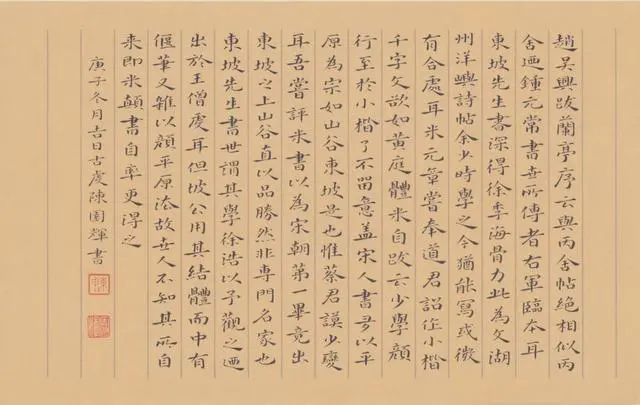 趙吳興跋蘭亭序云與丙舍帖絕相似丙
舍迺鍾元常書世所傳者右軍臨本耳
東坡先生書深得徐季海骨力此為文湖
州洋嶼詩帖余少時學之今猶能寫或微
有合處耳米元章嘗奉道君詔作小楷
千字文欲如黃庭體米自跋云少學顏
行至於小楷了不留意蓋宋人書多以平
原為宗如山谷東坡是也惟蔡君謨少變
耳吾嘗評米書以為宋朝第一畢竟出
東坡之上山谷直以品勝然非專門名家也
東坡先生書世謂其學徐浩以予觀之迺
出於王僧虔耳但坡公用其結體而中有
偃筆又雜以顏平原法故世人不知其所自
來即米顛書自率更得之
庚子冬月吉日古虞陳園輝書